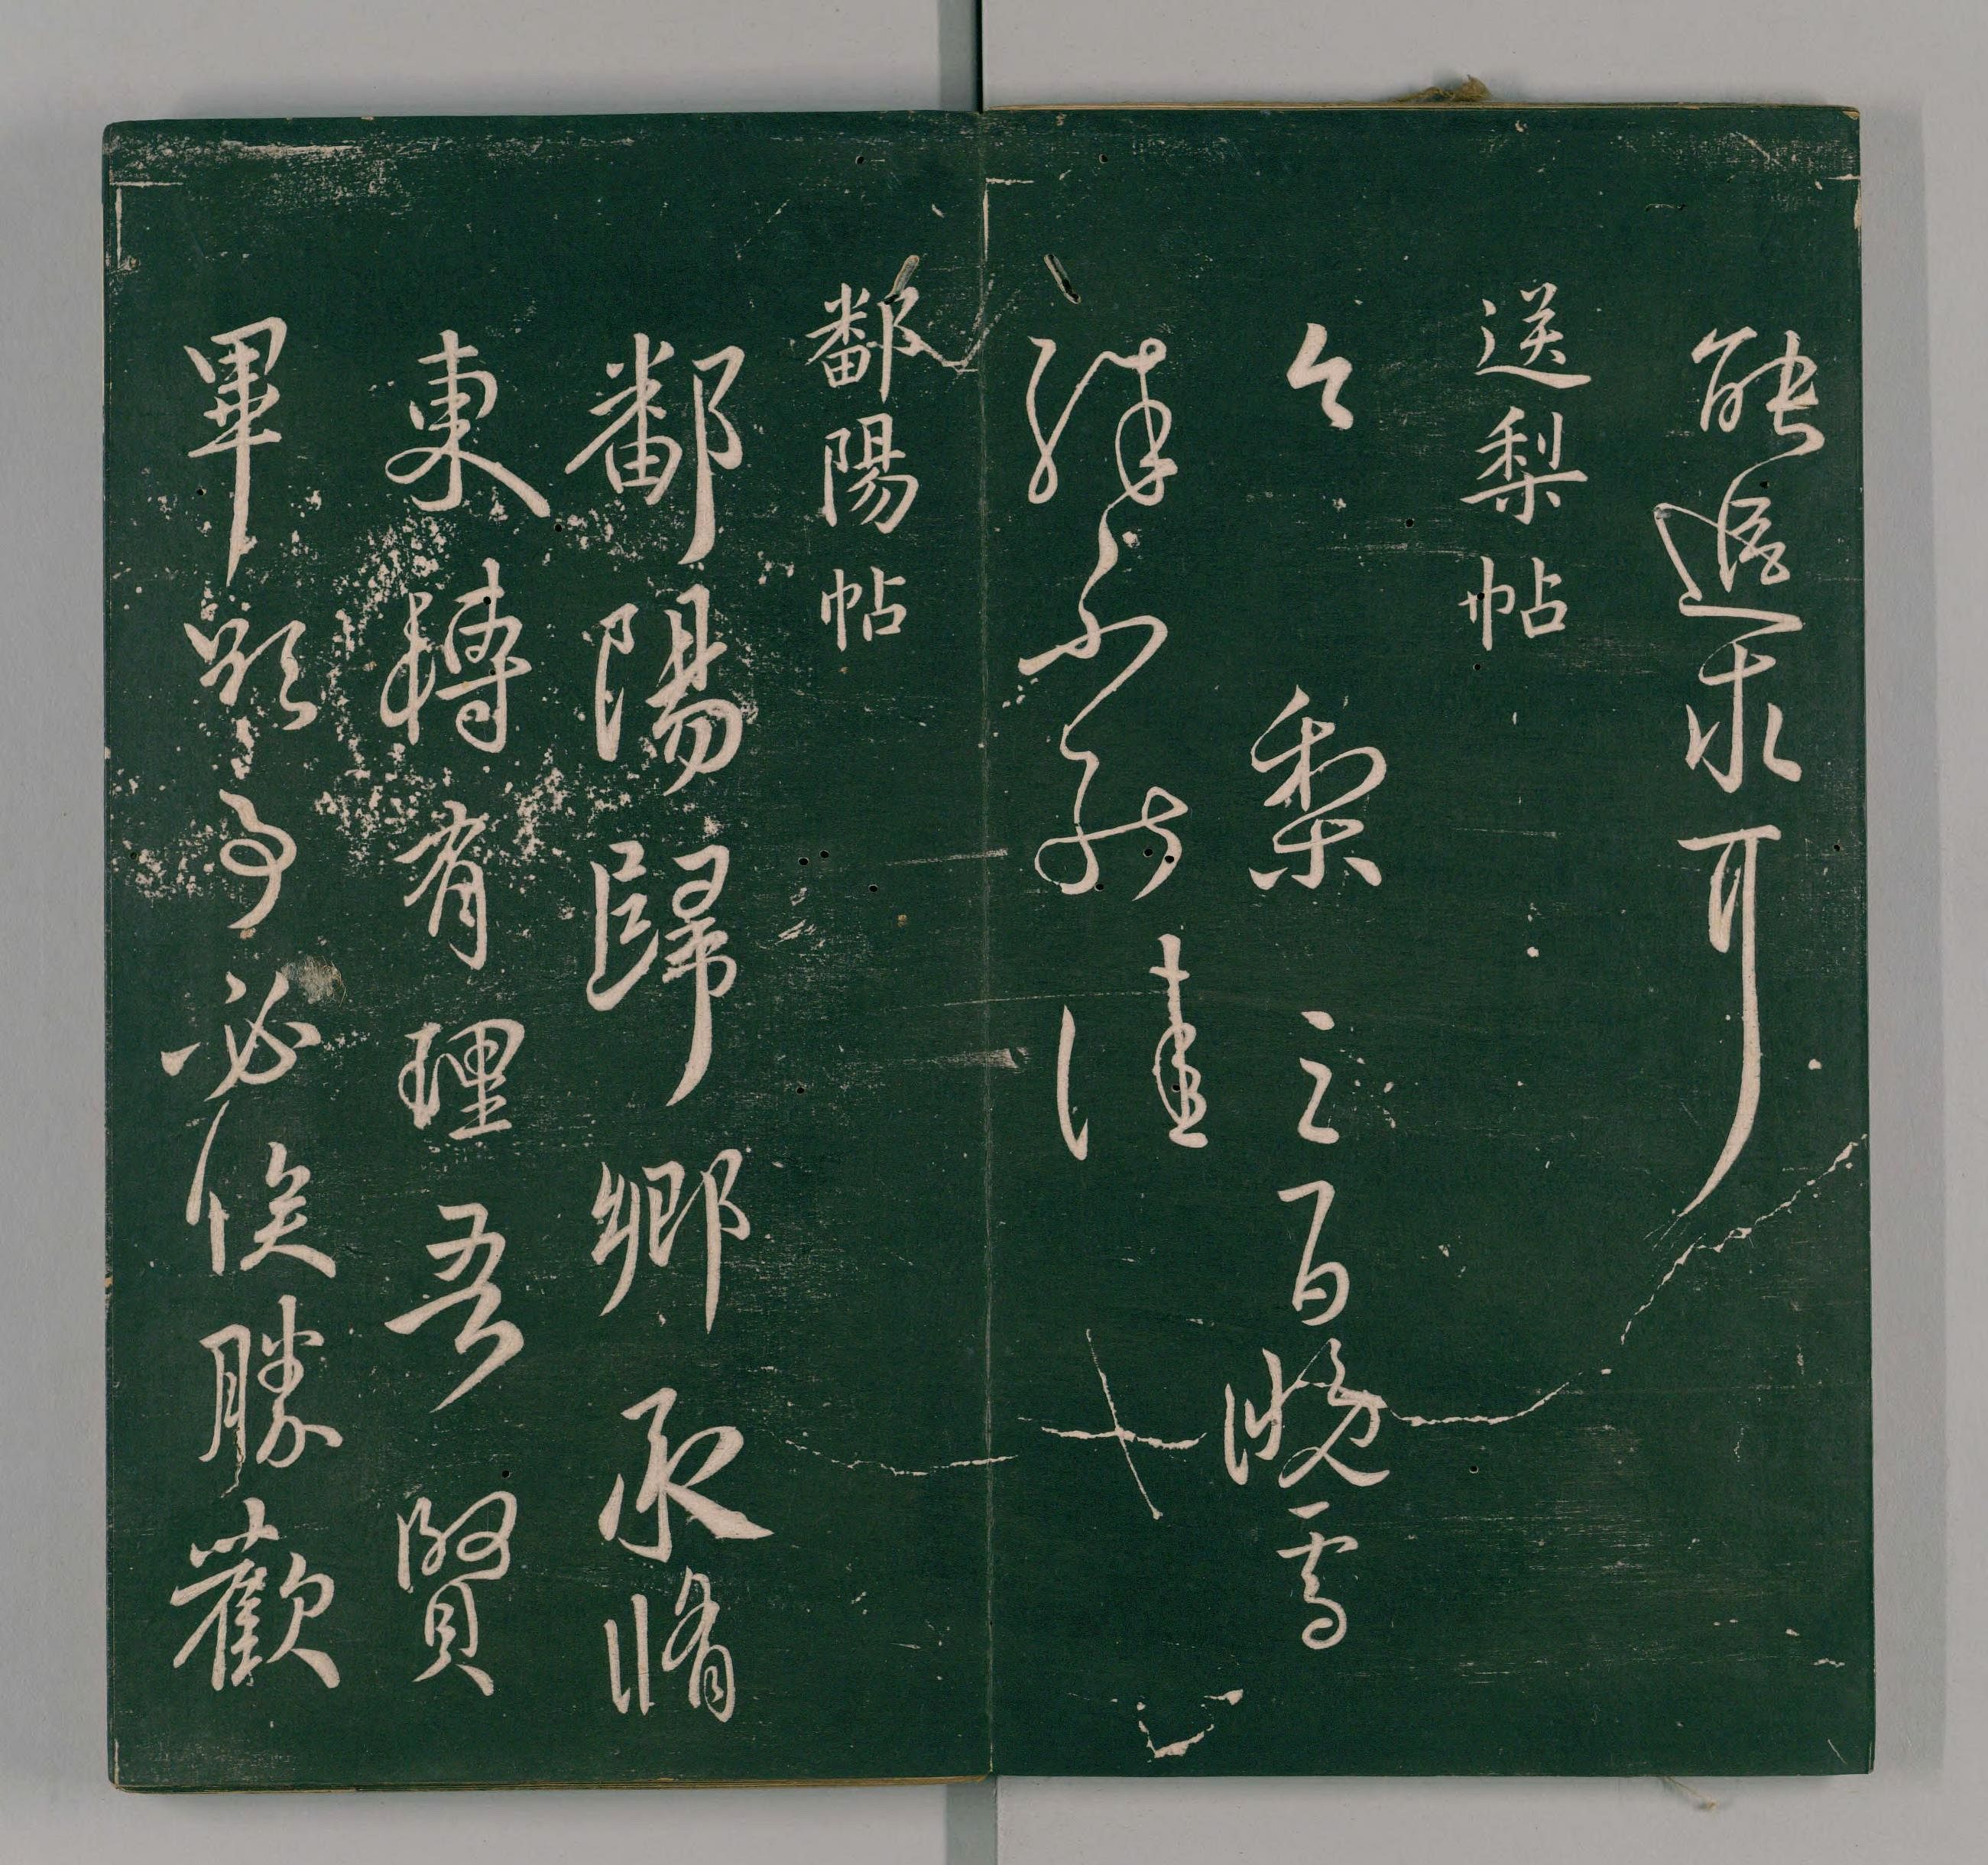 能求可
送梨帖
今梨三百晚雪
殊不能佳
鄱陽帖
鄱陽歸鄉承脩
東轉有理吾賢
畢事必俟勝歡